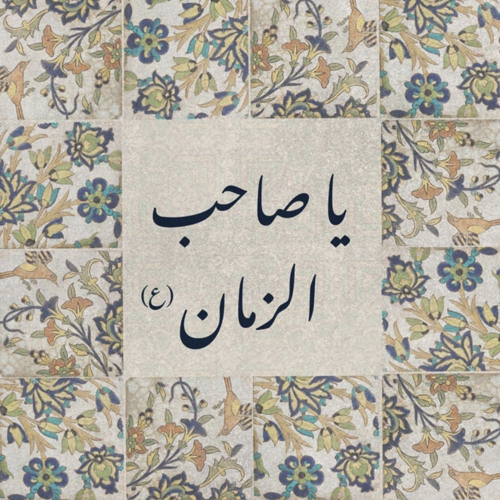 یا صاحب
الزمان (ع)